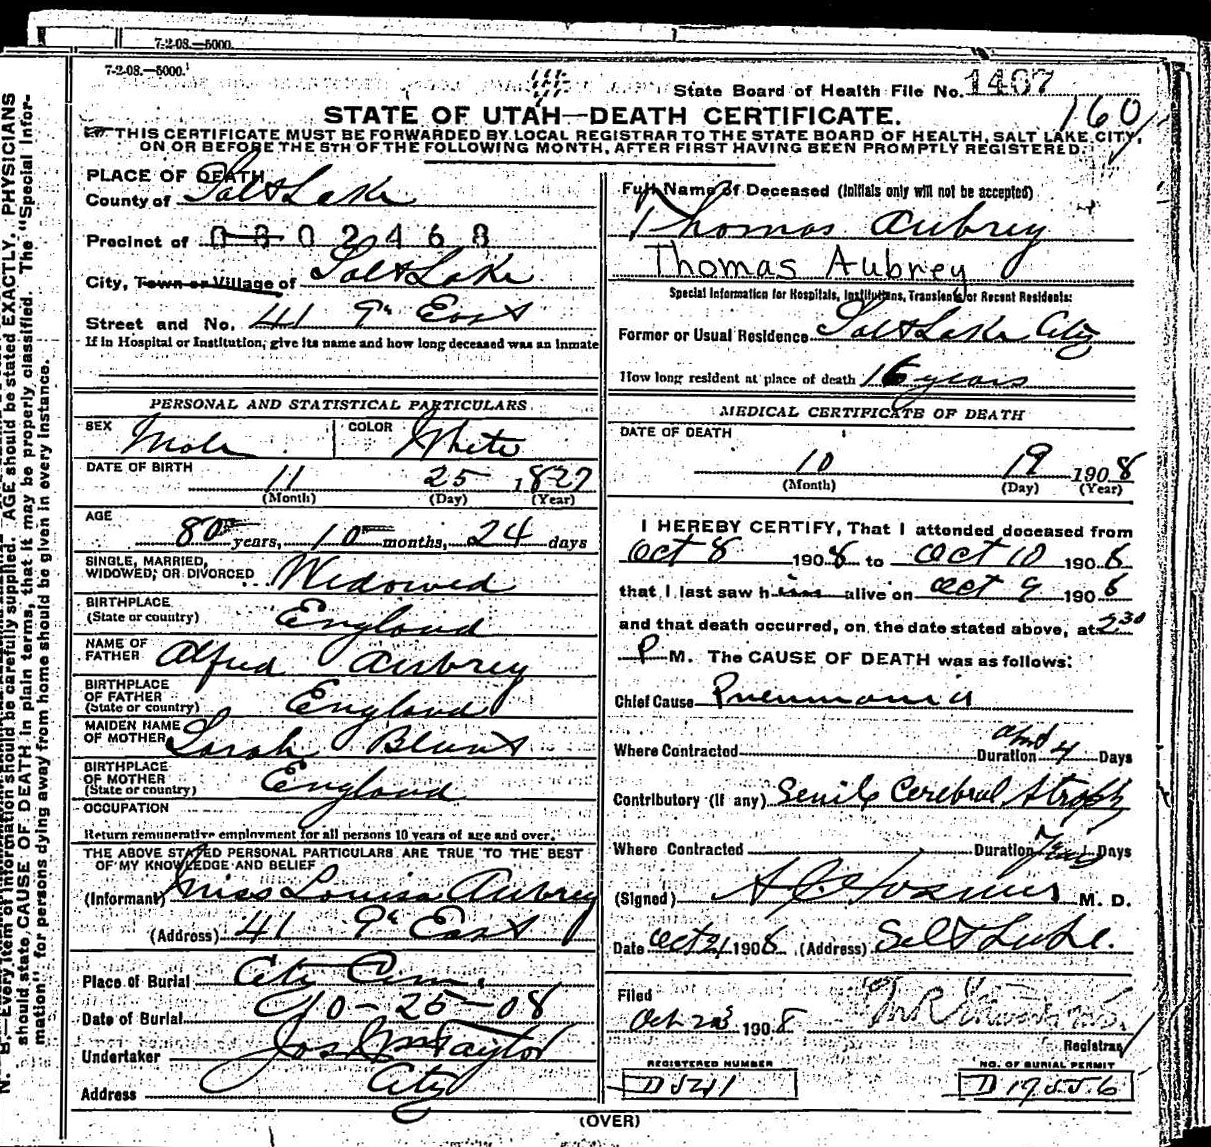 7-2-08.—5000.
7-2-08.—5000.
State Board of Health File No. 1407
160
STATE OF UTAH—DEATH CERTIFICATE.
THIS CERTIFICATE MUST BE FORWARDED BY LOCAL REGISTRAR TO THE STATE BOARD OF HEALTH, SALT LAKE CITY,
ON OR BEFORE THE 5TH OF THE FOLLOWING MONTH, AFTER FIRST HAVING BEEN PROMPTLY REGISTERED.
N. B.—Every item of information should be carefully supplied. AGE should be stated EXACTLY. PHYSICIANS
should state CAUSE OF DEATH in plain terms, that it may be properly classified. The "Special Infor-
mation" for persons dying away from home should be given in every instance.
PLACE OF DEATH
County of Salt Lake
Precinct of 0802468
City, Town or Village of Salt Lake
Street and No. 41 9th East
If in Hospital or Institution, give its name and how long deceased was an inmate
PERSONAL AND STATISTICAL PARTICULARS
SEX Male COLOR White
DATE OF BIRTH 11 25 1827
(Month) (Day) (Year)
AGE 80 years, 10 months, 24 days
SINGLE, MARRIED,
WIDOWED, OR DIVORCED Widowed
BIRTHPLACE
(State or country) England
NAME OF
FATHER Alfred Aubrey
BIRTHPLACE
OF FATHER
(State or country) England
MAIDEN NAME
OF MOTHER Sarah Blunt
BIRTHPLACE
OF MOTHER
(State or country) England
OCCUPATION
Return remunerative employment for all persons 10 years of age and over.
THE ABOVE STATED PERSONAL PARTICULARS ARE TRUE TO THE BEST
OF MY KNOWLEDGE AND BELIEF
(Informant) Miss Louisa Aubrey
(Address) 41 9th East
Place of Burial City Cem.
Date of Burial 10-25-08
Undertaker Jos Wm Taylor
Address City
Full Name of Deceased (Initials only will not be accepted)
Thomas Aubrey
Thomas Aubrey
Special Information for Hospitals, Institutions, Transients or Recent Residents:
Former or Usual Residence Salt Lake City
How long resident at place of death 16 years
MEDICAL CERTIFICATE OF DEATH
DATE OF DEATH
10 19 1908
(Month) (Day) (Year)
I HEREBY CERTIFY, That I attended deceased from
Oct 8 1908 to Oct 10 1908
that I last saw him alive on Oct 9 1908
and that death occurred, on the date stated above, at 2 30
P M. The CAUSE OF DEATH was as follows:
Chief Cause Pneumonia
Where Contracted Duration 4 Days
Contributory (if any) Senile Cerebral Atrophy
Where Contracted Duration Years Days
(Signed) M. D.
Date Oct 21 1908 (Address) Salt Lake.
Filed
Oct 23 1908
Registrar
REGISTERED NUMBER
D 5241
NO. OF BURIAL PERMIT
D 19556
(OVER)